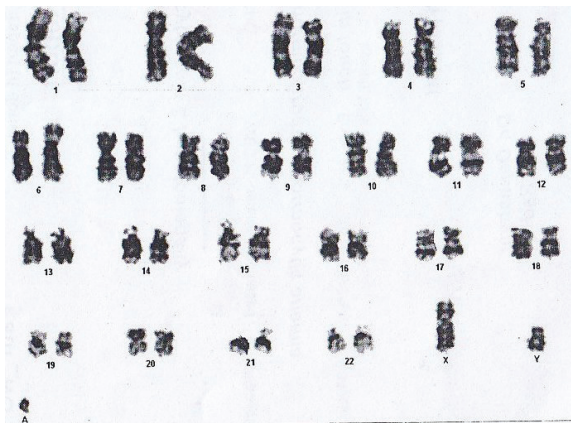 1 2 3 4 5
6 7 8 9 10 11 12
13 14 15 16 17 18
19 20 21 22 X Y
A